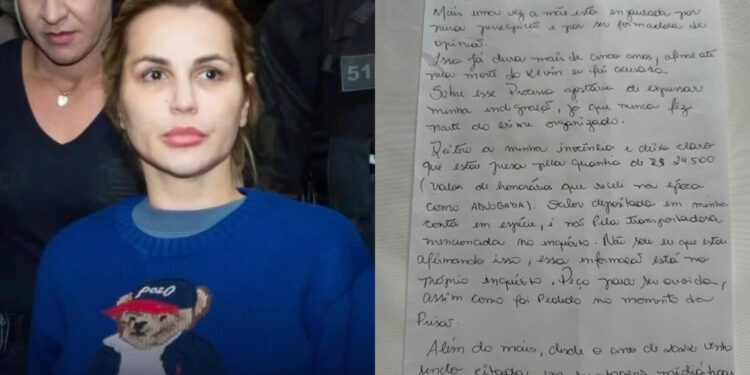 51
POLO
Mais uma vez a mãe está enjaulada por
pura perseguição e por ser formadora de
opinião.
Isso já dura mais de cinco anos, afinal até
pela morte do Kevin eu fui acusada
Sobre esse Processo gostaria de expressar
minha indignação, já que nunca fiz
parte do crime organizado.
Reitero a minha inocência e deixo claro
que estou presa pela quantia de R$ 24.500
(valor de honorários que recebi na época
como ADVOGADA). Valor depositado em minha
conta em espécie, e não Pela transportadora
mencionada no inquérito. Não sou eu que estou
afirmando isso, essa informação está no
próprio inquérito. Peço para ser ouvida,
assim como foi Pedido no momento da
Prisão.
Além do mais, desde o ano de venho
sendo citada em reportagens midiáticas